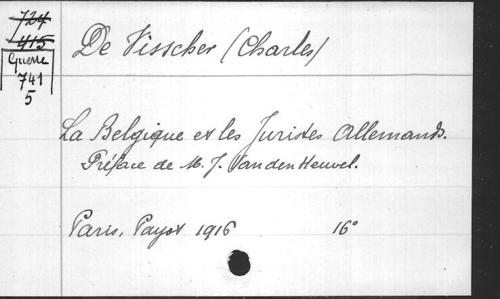 724
415
Guerre
741
5
De Visscher (Charles)
La Belgique et les Juristes Allemands.
Préface de M. J. Van den Heuvel.
Paris, Payot 1916 16°